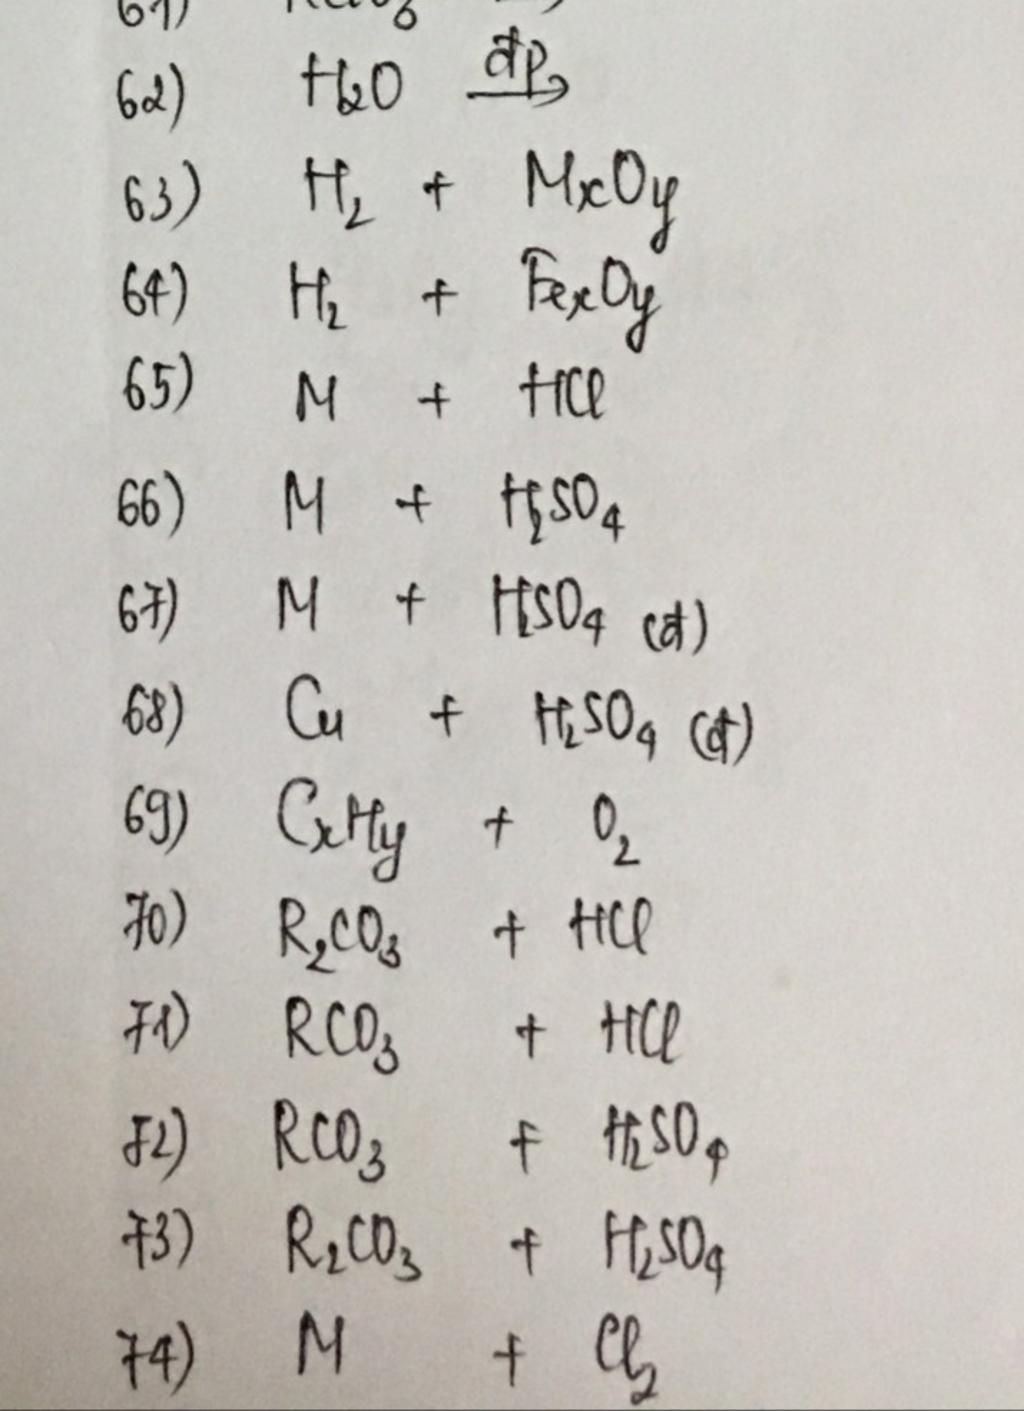 61) KClO3
62) H2O đp→
63) H2 + MxOy
64) H2 + FexOy
65) M + HCl
66) M + H2SO4
67) M + H2SO4 (đ)
68) Cu + H2SO4 (đ)
69) CxHy + O2
70) R2CO3 + HCl
71) RCO3 + HCl
72) RCO3 + H2SO4
73) R2CO3 + H2SO4
74) M + Cl2